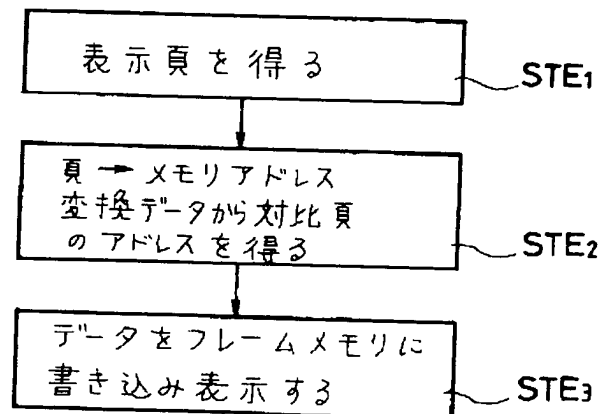 表示頁を得る
STE1
頁→メモリアドレス
変換データから対比頁
のアドレスを得る
STE2
データをフレームメモリに
書き込み表示する
STE3